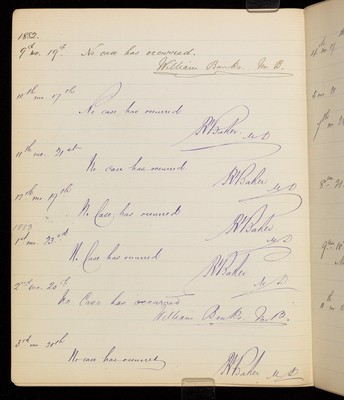 1882.
9th mo. 19th. No case has occurred.
William Banks. M.B.
11th mo. 17th
No case has occurred
RBaker M D
11th mo. 21st
No case has occurred
RBaker M D
12th mo 19th
No Case has occurred
RBaker M D
1883
1st mo. 23rd
No Case has occurred
RBaker M D
2nd mo. 20th
No Case has occurred
William Banks. M.B.
3rd mo 20th
No case has occurred
RBaker M D